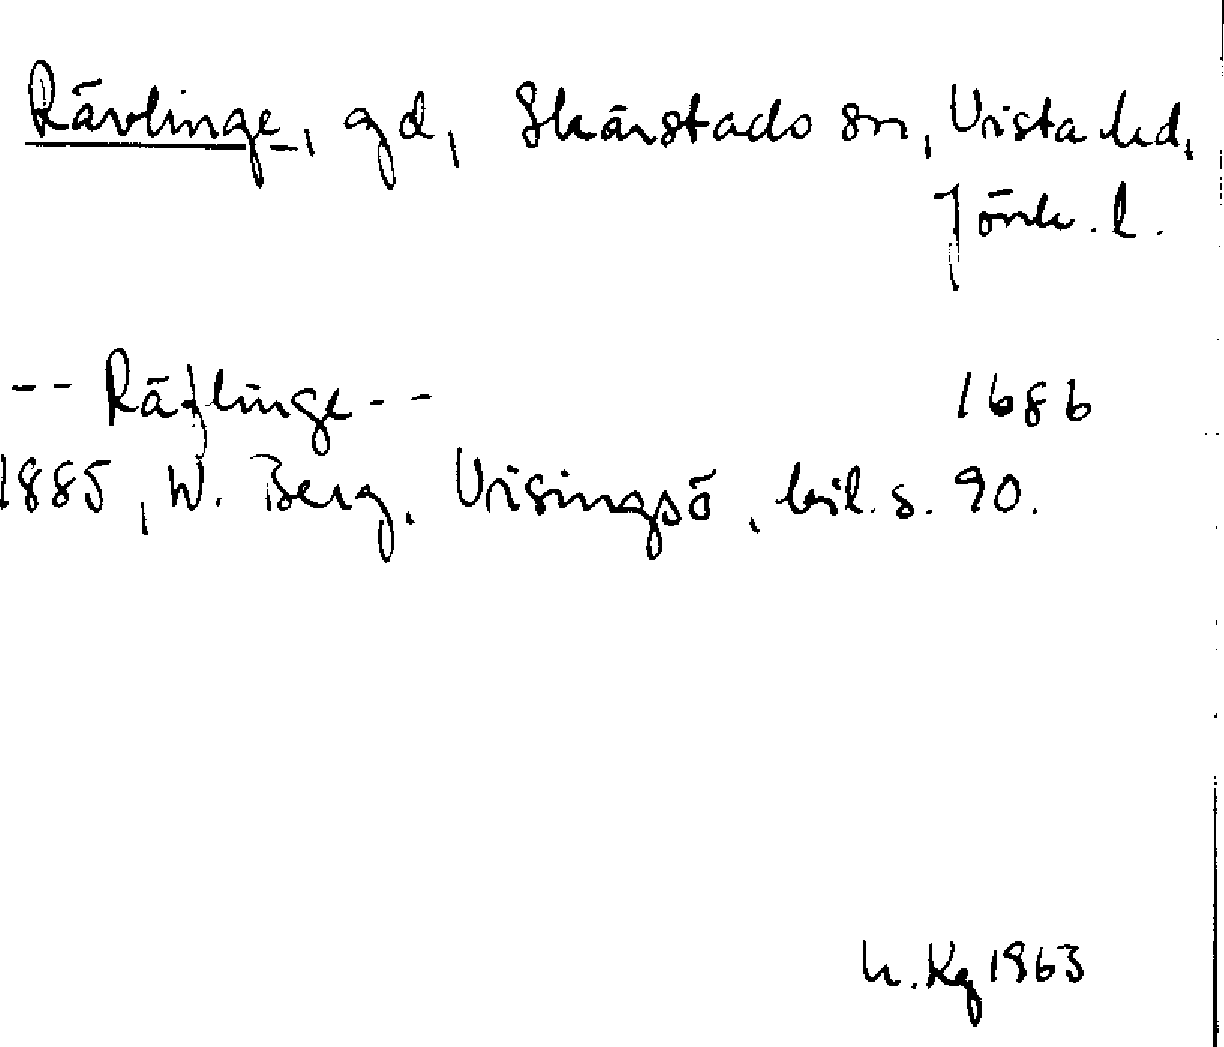 Rävlinge, gd, Skärstads sn, Vista hd,
Jönk. l.
-- Räflinge -- 1686
1885, W. Berg, Visingsö, bil. s. 90.
h. Kg 1963